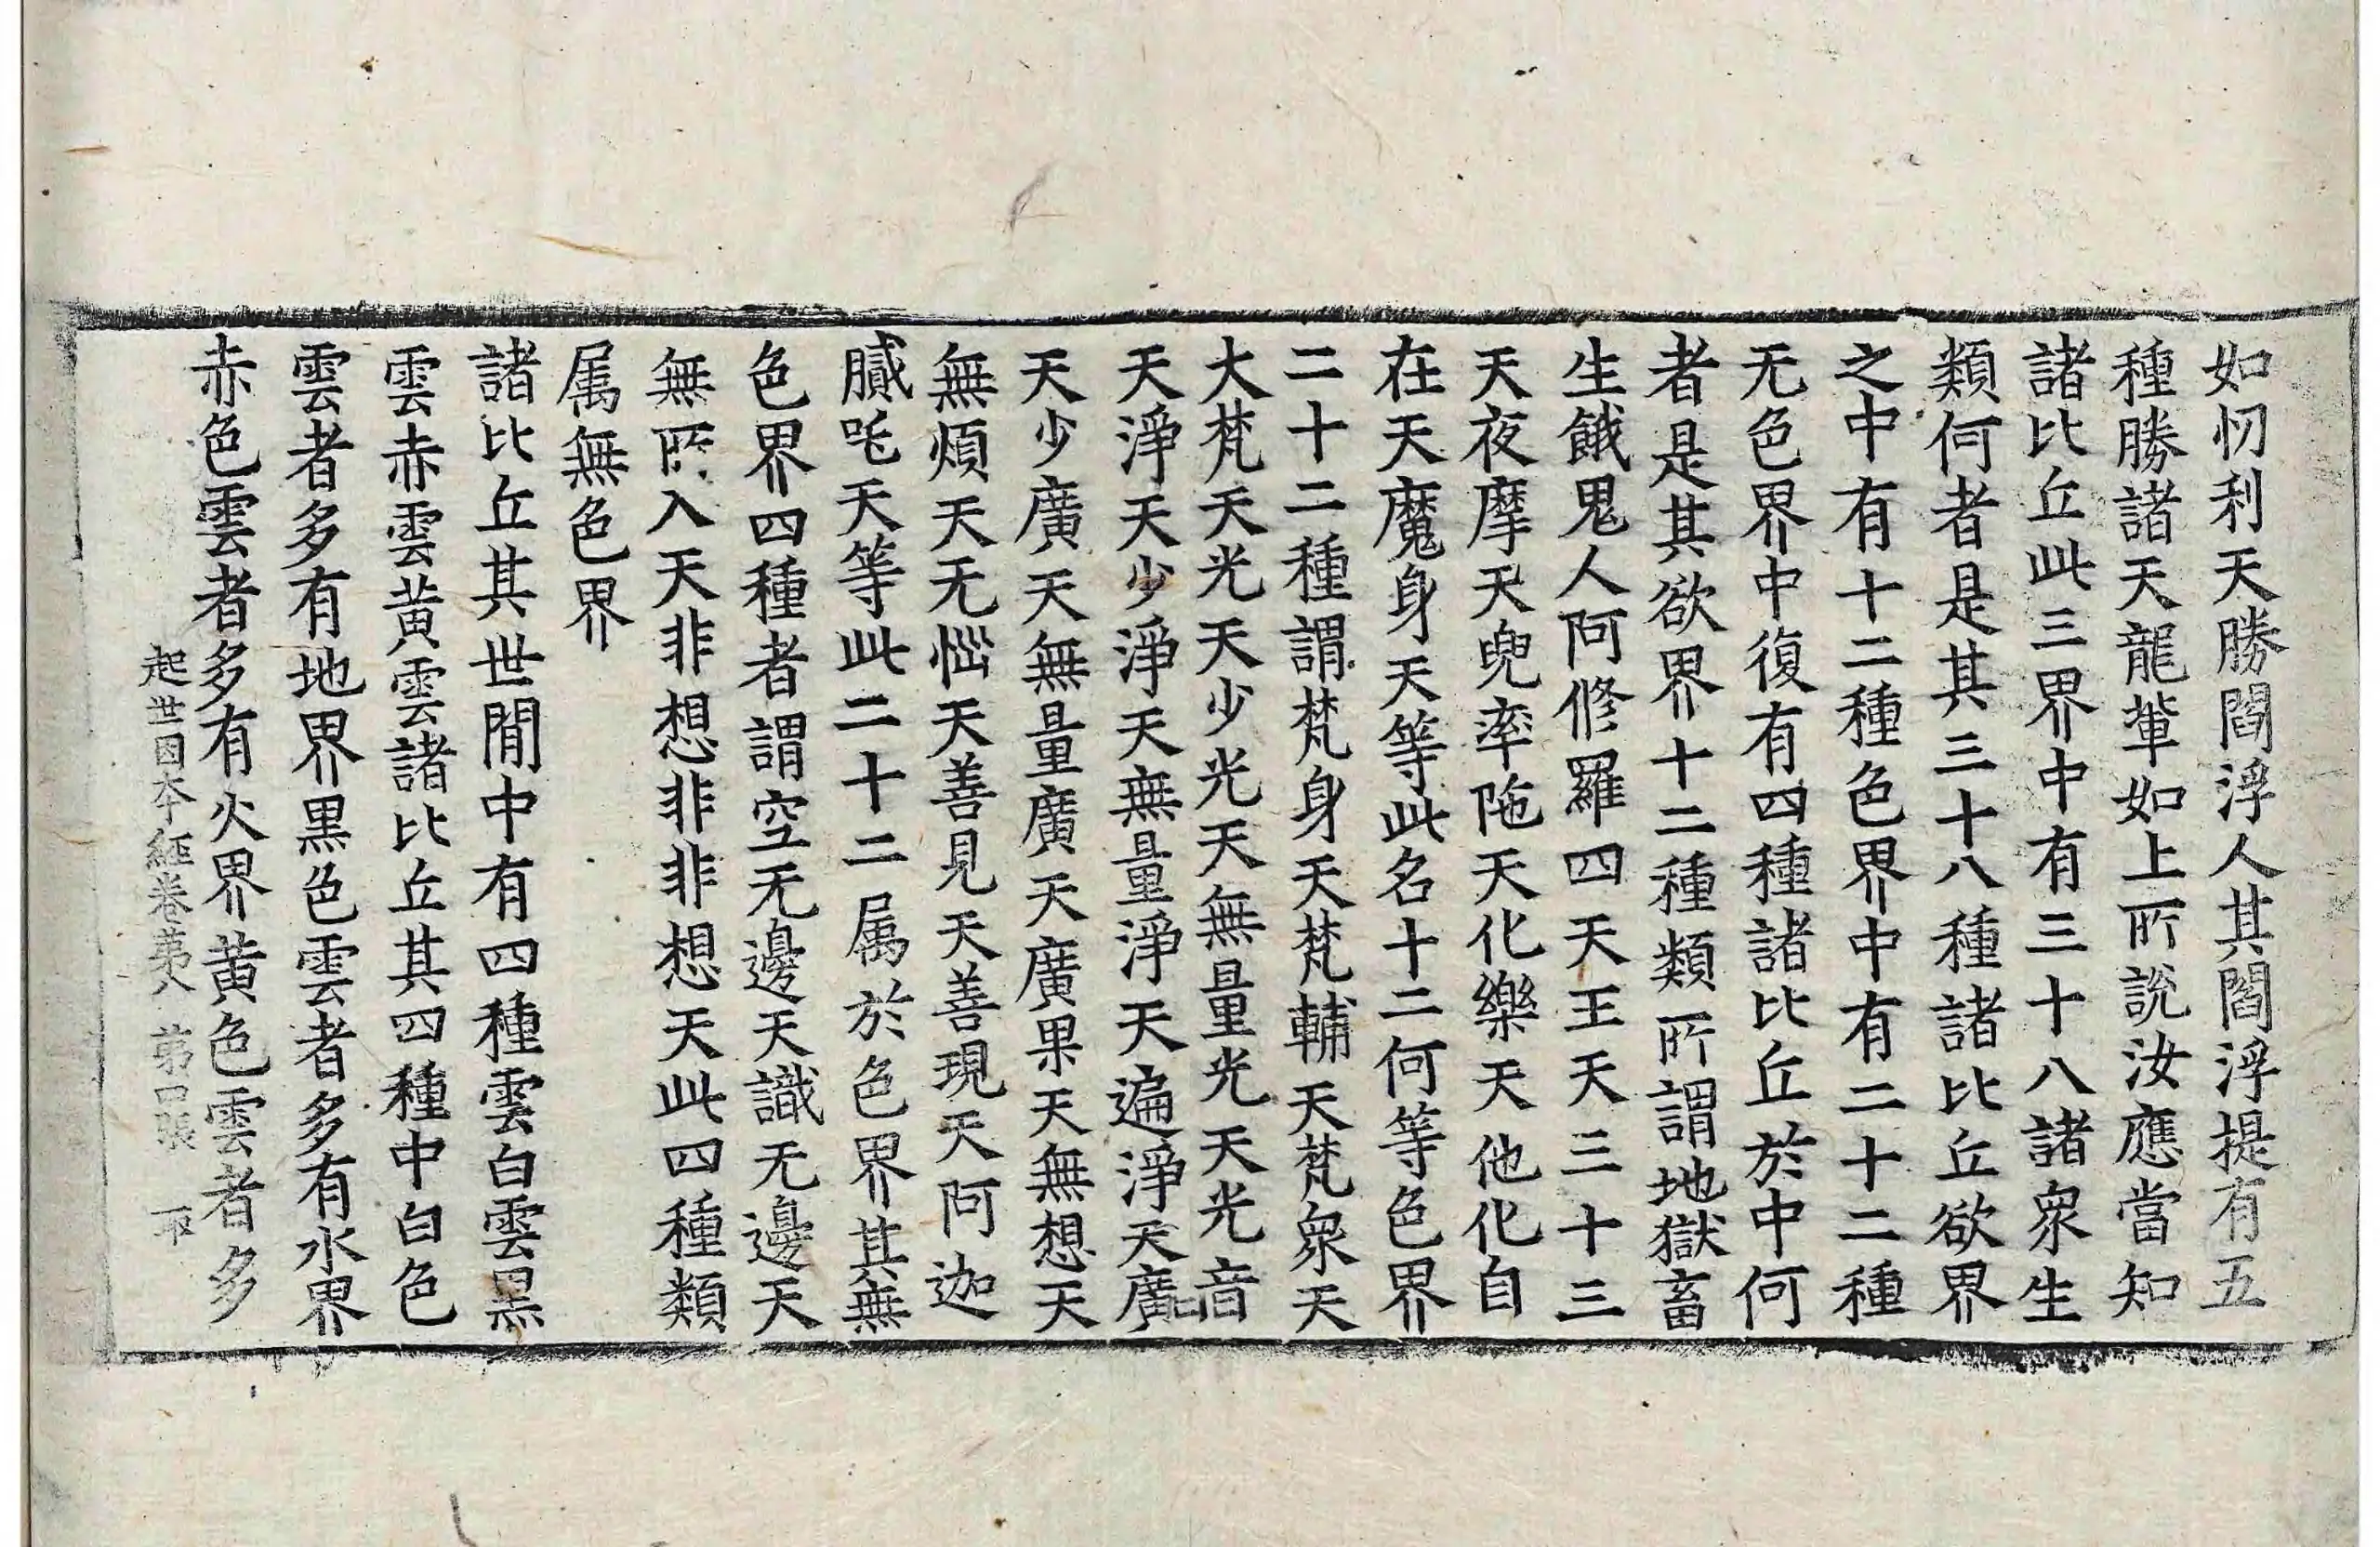 如忉利天勝閻浮人其閻浮提有五
種勝諸天龍輩如上所說汝應當知
諸比丘此三界中有三十八諸衆生
類何者是其三十八種諸比丘欲界
之中有十二種色界中有二十二種
无色界中復有四種諸比丘於中何
者是其欲界十二種類所謂地獄畜
生餓鬼人阿修羅四天王天三十三
天夜摩天兜率陁天化樂天他化自
在天魔身天等此名十二何等色界
二十二種謂梵身天梵輔天梵衆天
大梵天光天少光天無量光天光音
天淨天少淨天無量淨天遍淨天廣
天少廣天無量廣天廣果天無想天
無煩天无惱天善見天善現天阿迦
膩吒天等此二十二属於色界其無
色界四種者謂空无邊天識无邊天
無所入天非想非非想天此四種類
属無色界
諸比丘其世間中有四種雲白雲黑
雲赤雲黃雲諸比丘其四種中白色
雲者多有地界黑色雲者多有水界
赤色雲者多有火界黃色雲者多
起世因本經卷苐八 苐口張